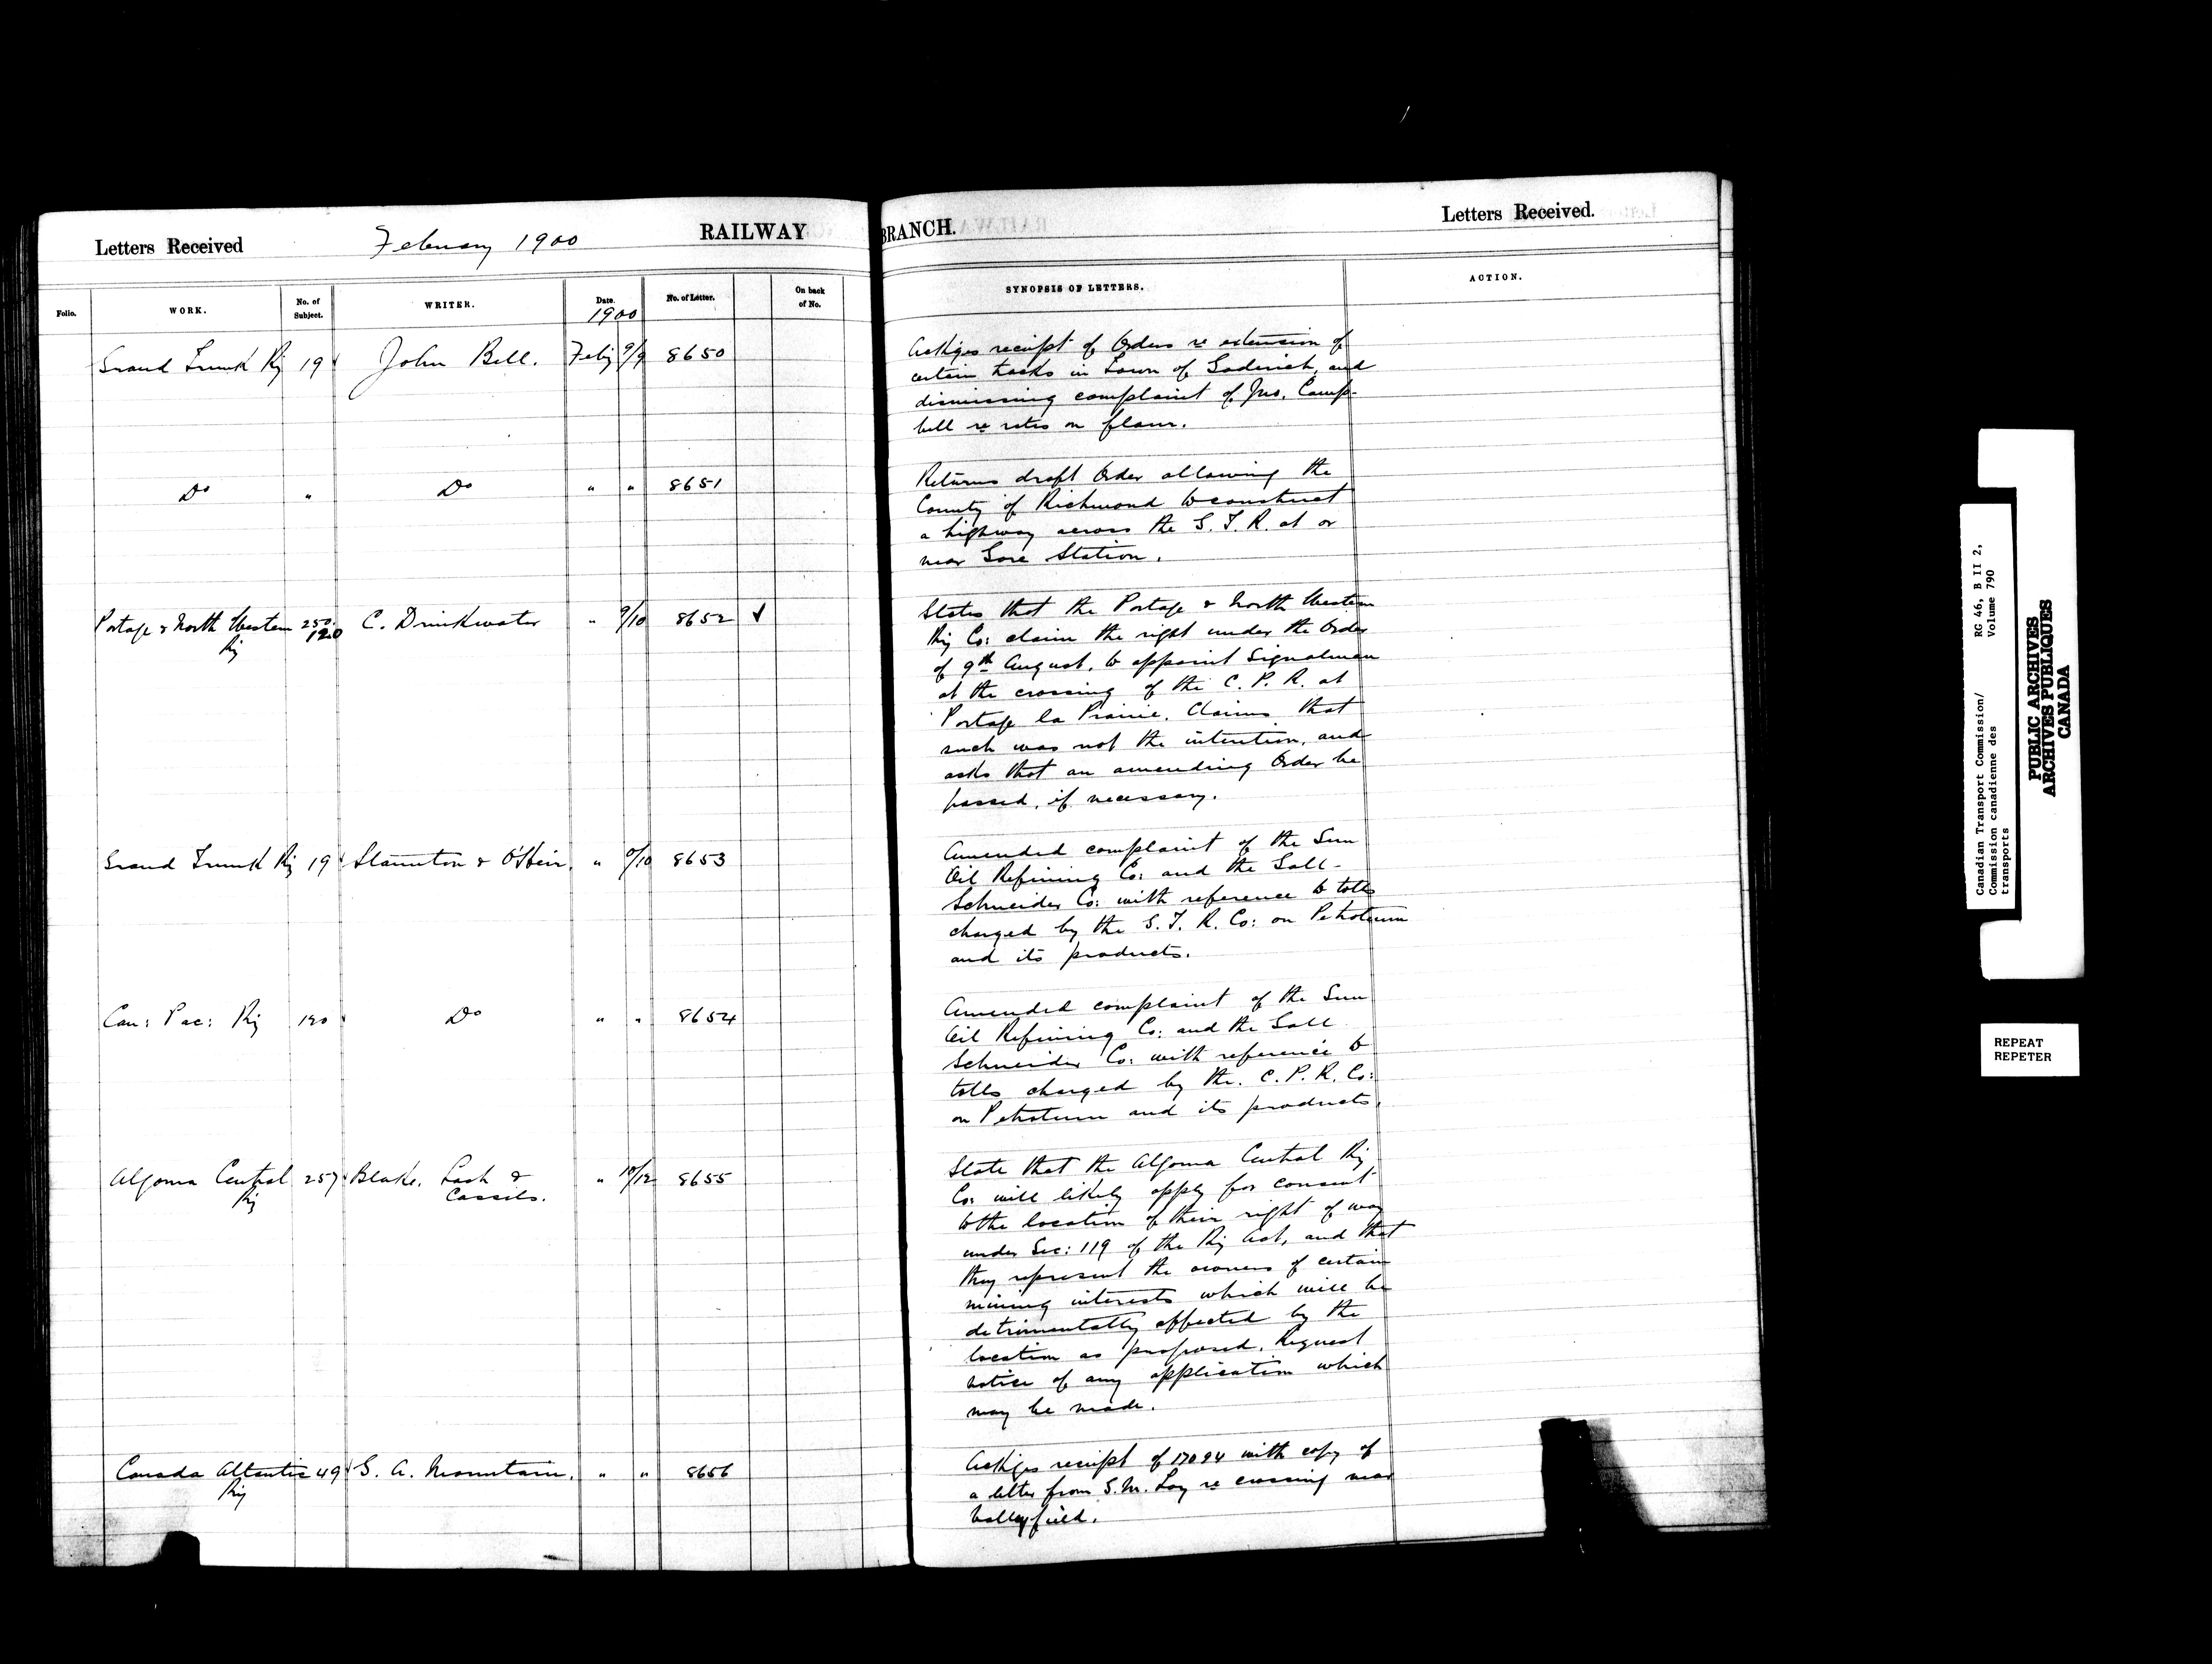 Letters Received
February 1900
RAILWAY BRANCH.
Letters Received.
Folio.
WORK.
No. of Subject.
WRITER.
Date. 1900
No. of Letter.
On back of No.
SYNOPSIS OF LETTERS.
ACTION.
Grand Trunk Ry 19 John Bell. Feby 9/9 8650
Ackges receipt of Orders re extension of
certain tracks in Town of Goderich, and
dismissing complaint of Jno. Camp-
bell re rates on flour.
Do " Do " " 8651
Returns draft Order allowing the
County of Richmond to construct
a highway across the G. T. R. at or
near Gore Station.
Portage & North Western Ry 250. 120 C. Drinkwater " 9/10 8652 ✓
States that the Portage & North Western
Ry Co: claim the right under the Order
of 9th August, to appoint Signalman
at the crossing of the C. P. R. at
Portage la Prairie. Claims that
such was not the intention, and
asks that an amending Order be
passed, if necessary.
Grand Trunk Ry 19 Staunton & O'Heir. " 9/10 8653
Amended complaint of the Sun
Oil Refining Co: and the Gall-
Schneider Co: with reference to tolls
charged by the G. T. R. Co: on Petroleum
and its products.
Can: Pac: Ry 120 Do " " 8654
Amended complaint of the Sun
Oil Refining Co: and the Gall
Schneider Co: with reference to
tolls charged by the C. P. R. Co:
on Petroleum and its products.
Algoma Central Ry 257 Blake, Lash & Cassels. " 10/12 8655
State that the Algoma Central Ry
Co: will likely apply for consent
to the location of their right of way
under Sec: 119 of the Ry Act, and that
they represent the owners of certain
mining interests which will be
detrimentally affected by the
location as proposed. Request
notice of any application which
may be made.
Canada Atlantic Ry 49 G. A. Mountain. " " 8656
Ackges receipt of 17094 with copy of
a letter from G. M. Loy re crossing near
Valleyfield.
Canadian Transport Commission/
Commission canadienne des
transports
RG 46, B II 2,
Volume 790
PUBLIC ARCHIVES
ARCHIVES PUBLIQUES
CANADA
REPEAT
REPETER